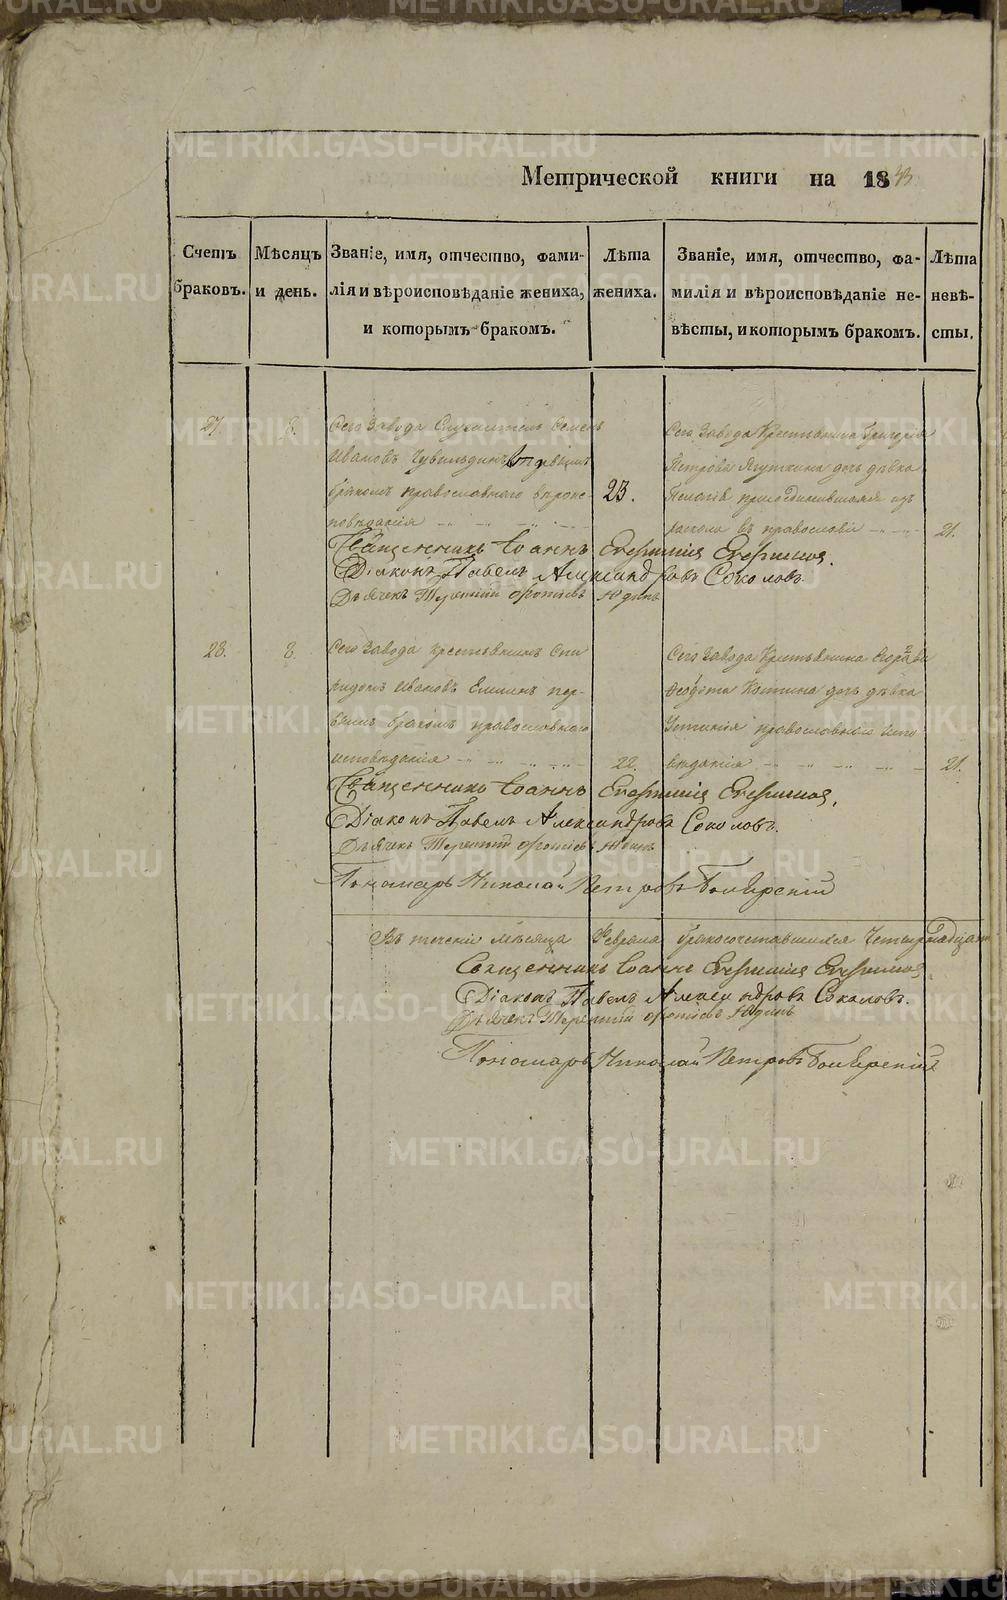 Метрической книги на 1843
Счетъ браковъ.
Мѣсяцъ и день.
Званіе, имя, отчество, фами-
лія и вѣроисповѣданіе жениха,
и которымъ бракомъ.
Лѣта жениха.
Званіе, имя, отчество, фа-
милія и вѣроисповѣданіе не-
вѣсты, и которымъ бракомъ.
Лѣта невѣ-
сты.
27. 8.
Сего Завода Служитель Семенъ
Ивановъ первымъ
бракомъ православнаго вѣроис-
повѣданія
23.
Сего Завода Крестьянина Григорія
Петрова дочь дѣвка
Пелагія присоединившаяся изъ
раскола въ православіе
21.
Священникъ Іоаннъ Евфимій Евфимов.
Діаконъ Павелъ Александровъ Соколовъ
Дьячекъ Терентій Фотіевъ Юдинъ
28. 8
Сего Завода крестьянинъ Спи
ридонъ Ивановъ пер-
вымъ бракомъ православнаго
исповѣданія
22.
Сего Завода Крестьянина Егора
Федота Котина дочь дѣвка
Устинія православнаго испо
вѣданія
21.
Священникъ Іоаннъ Евфимій Евфимов.
Діаконъ Павелъ Александровъ Соколовъ.
Дьячекъ Терентій Фотіевъ Юдинъ
Пономарь Николай Петровъ
Въ теченіи мѣсяца Февраля бракосочетавшихся Четырнадцать
Священникъ Іоаннъ Евфимій Евфимов.
Діаконъ Павелъ Александровъ Соколовъ.
Дьячекъ Терентій Фотіевъ Юдинъ
Пономарь Николай Петровъ
METRIKI.GASO-URAL.RU